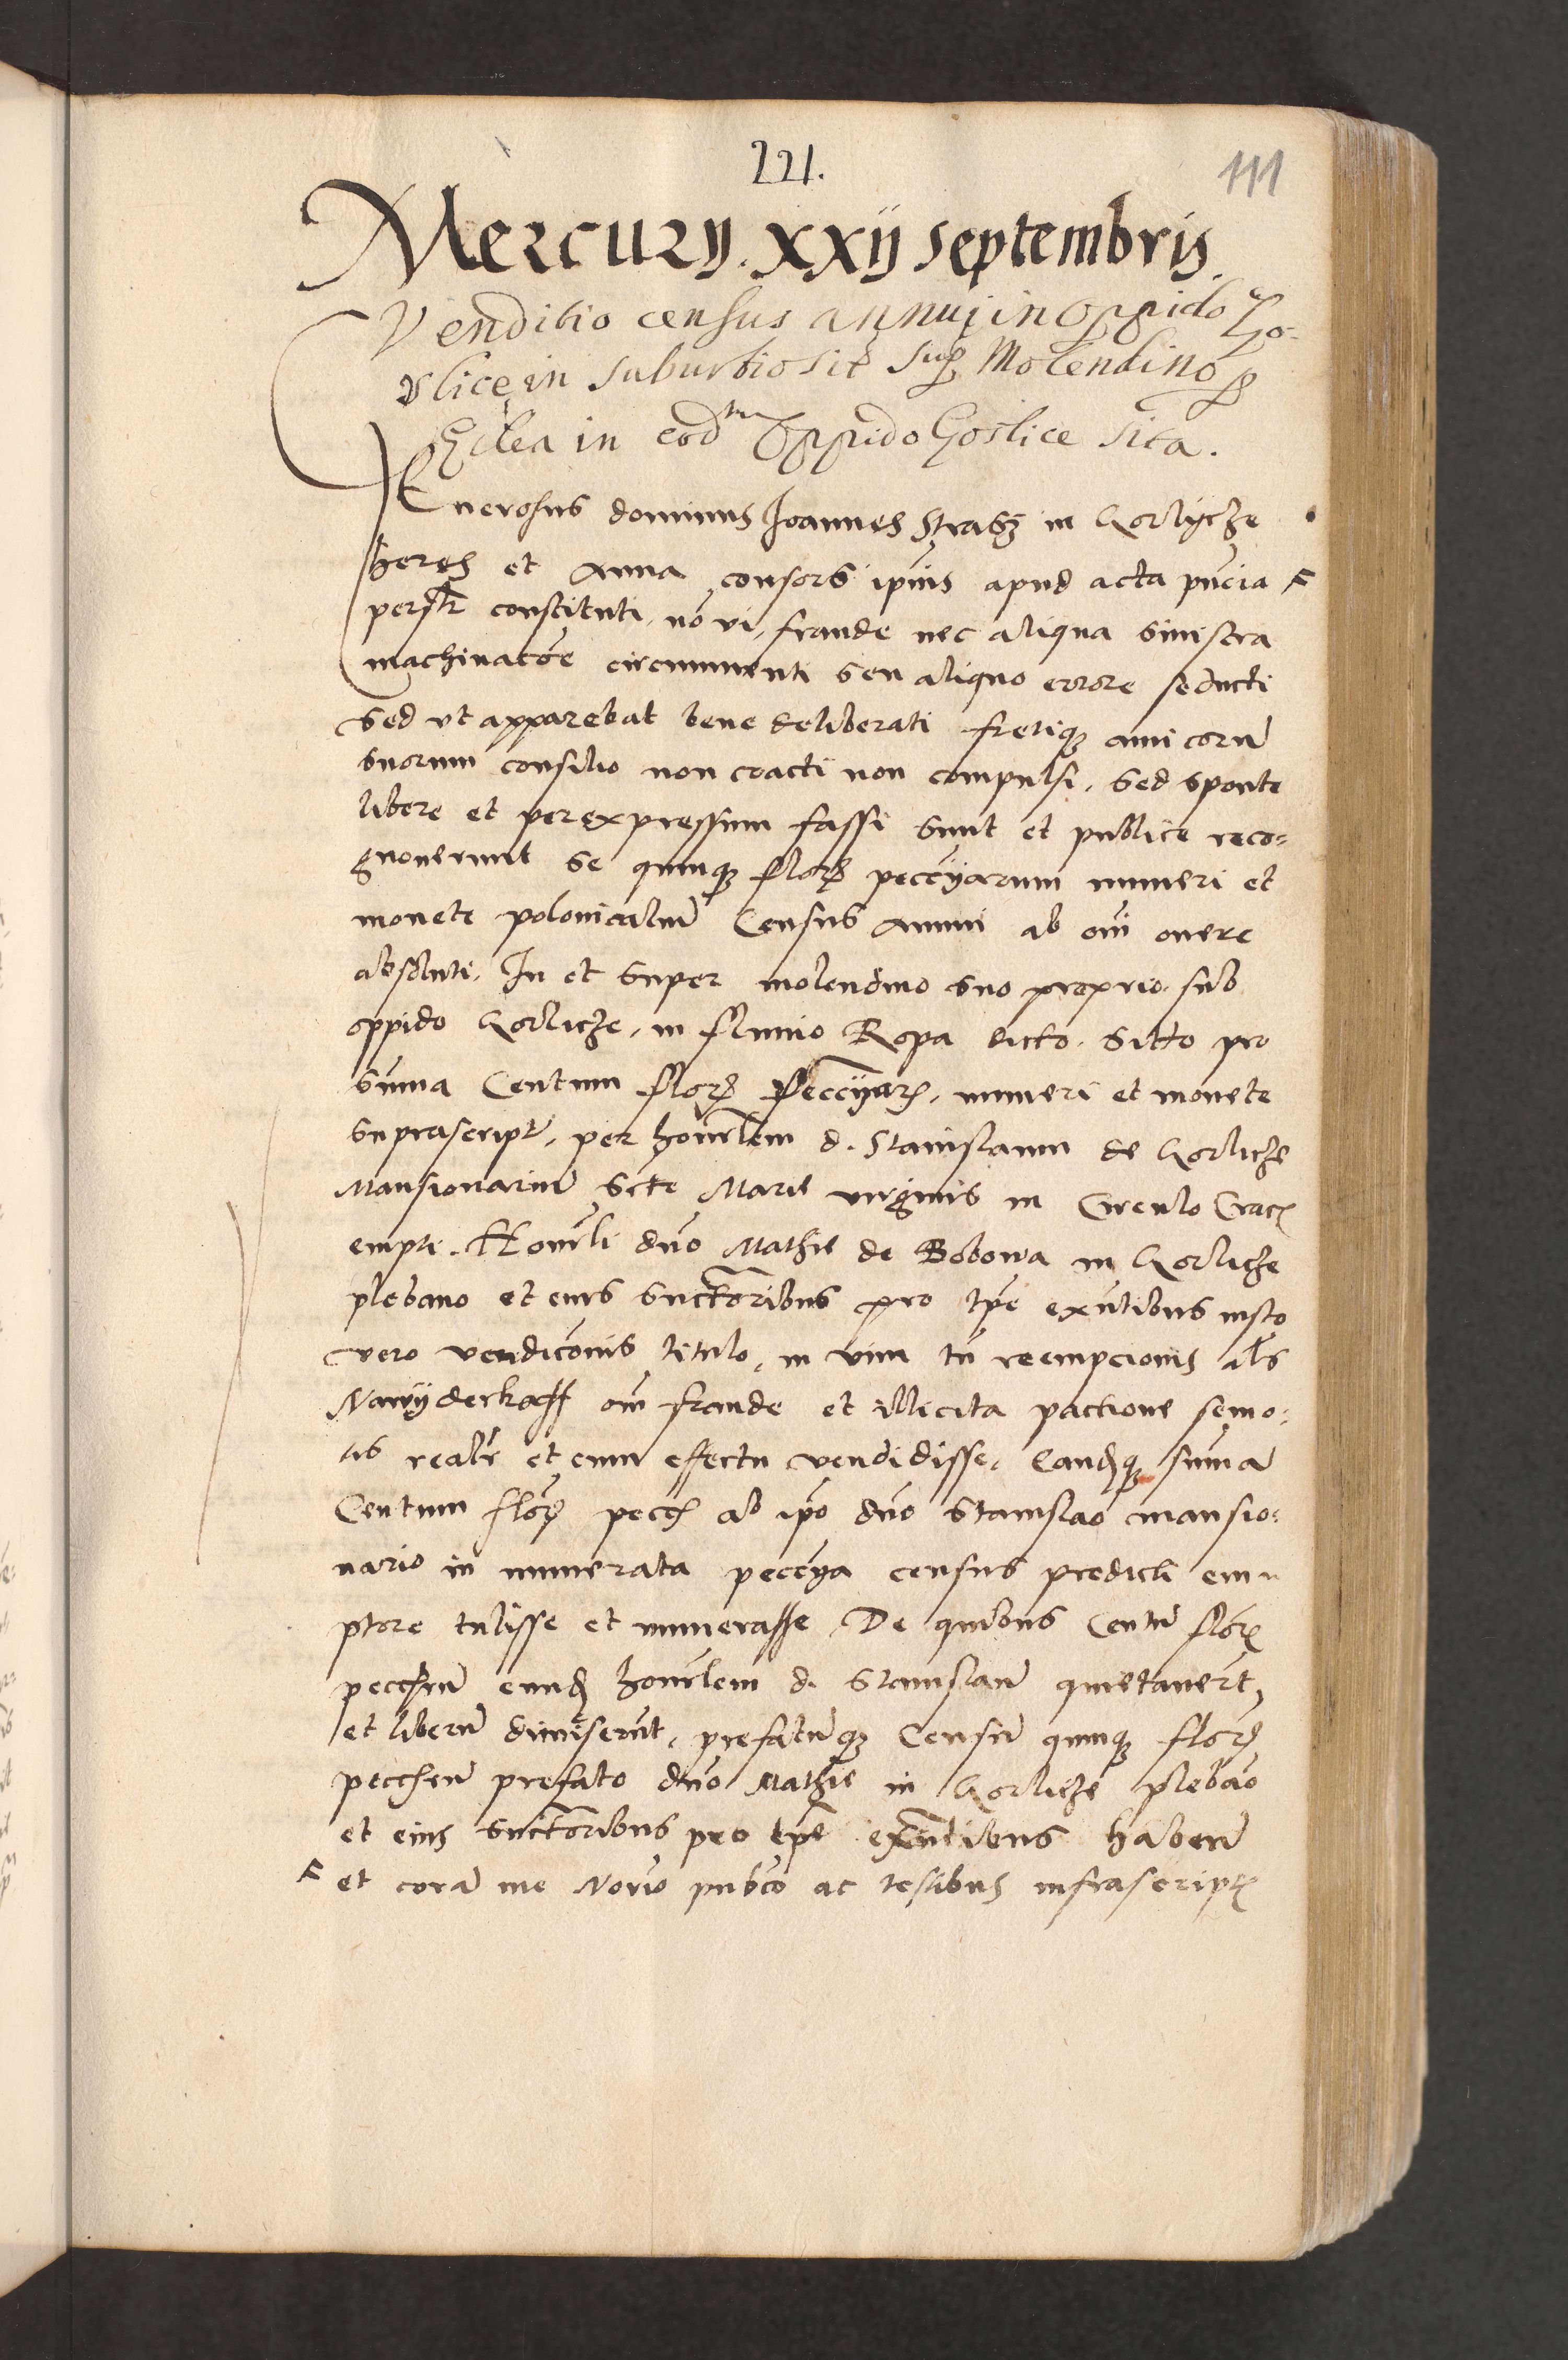 221.
111
Mercurÿ. xxÿ septembris.
Venditio census annui in Oppido Go-
rlice in suburbio sit sup Molendino p
Ecclea in eod Oppido Gorlice sita.
Generosus dominus Joannes in Gorlÿcze
heres et Anna consors ipius apud acta pncia
persl͂r constituti, nō vi, fraude nec aliqua sinistra
machinacōe circumuenti seu aliquo errore seducti
sed vt apparebat bene deliberati fretiq amicorū
suorum consilio non coacti non compulsi, sed sponte
libere et per expressum fassi sunt et publice reco-
gnouerunt se quinq flor peccÿarum numeri et
monete polonicaliū Census Annui ab om̄i onere
absoluti, In et super molendino suo proprio sub
oppido Gorlicze, in fluuio Ropa dicto, sitto pro
sūma Centum flor Peccÿar, numeri et monete
suprascript, per honrlem d. Stanislaum de Gorlicze
Mansionariū Scte Marie virginis in Circulo Crac
empti. Honrli dno Mathie de Bobowa in Gorlicze
plebano et eius succtoribus pro tpe exntibus iusto
vero vendicōnis titulo, in vim tn reempcionis als
Nawÿderkaff om̄i fraude et illicita pactione semo-
tis realr et cum effectu vendidisse, Eandq sūmā
Centum flor pecc ab ipo dno Stanislao mansio-
nario in numerata peccya census predicti em
ptore tulisse et numerasse De quibus Centū flor
pecchrū eund honrlem d. Stanislaū quietauerūt,
et liberū dimiserūt, prefatūq Censū quinq flor
pecchrū prefato dno Mathie in Gorlicze plebāo
et eius succtoribus pro tpe exntibus habenū
et corā me Norio pubco ac testibus infrascript